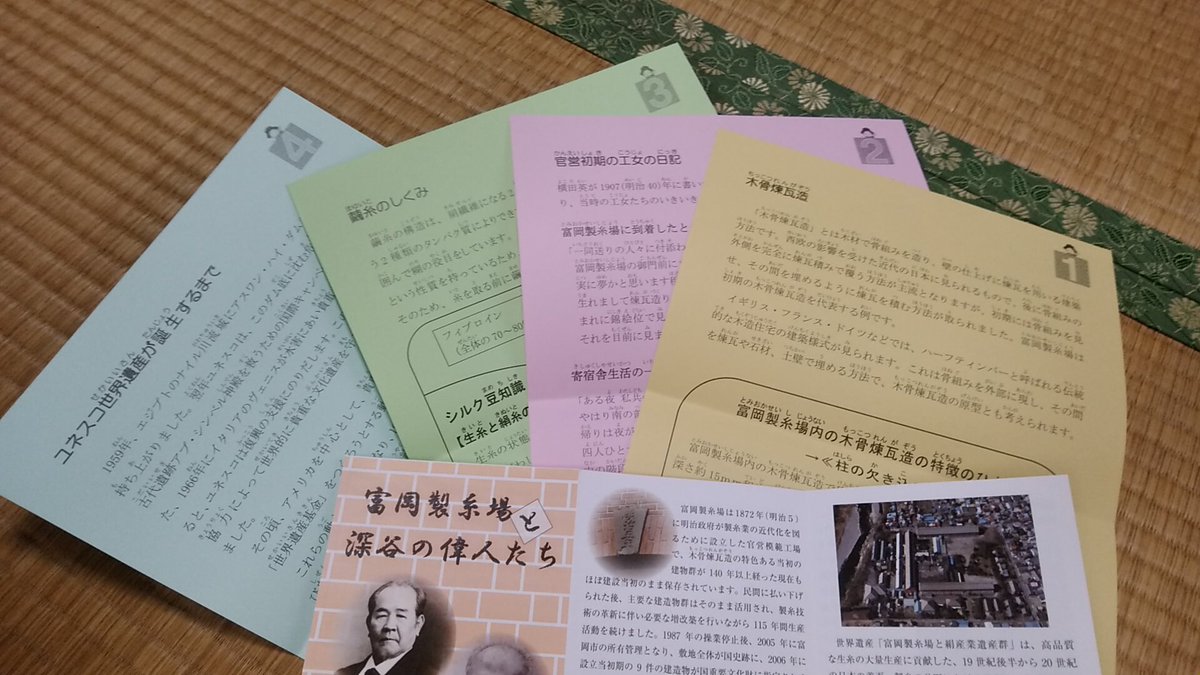 4
ユネスコ世界遺産が誕生するまで
1959年、エジプトのナイル川流域にアスワン・ハイ・ダム
持ち上がりました。翌年ユネスコは、このダム底に沈む
古代遺跡アブ・シンベル神殿を救うための国際キャンペ
た、1966年にイタリアのヴェニスが水術にあい
ると、ユネスコは復興の支援にのりだします。
協力によって世界的に貴重な文化遺産を
ました。
その頃、アメリカを中心として、
「世界遺産基金」を
これらの
3
繭糸のしくみ
繭糸の構造は、絹繊維になる2
う2種類のタンパク質によりでき
囲んで糊の役目をしています。
という性質を持っているため
そのため、糸を取る前に繭
フィブロイン
(全体の70~80
シルク豆知識
【生糸と絹糸の
生糸の状態
2
官営初期の工女の日記
横田英が1907(明治40)年に書い
り、当時の工女たちのいきいき
富岡製糸場に到着したと
「一同送りの人々に付添わ
富岡製糸場の御門前に
実に夢かと思います程
生れまして煉瓦造り
まれに錦絵位で見
それを目前に見ま
寄宿舎生活の一
「ある夜 私共
やはり南の部
帰りは夜が
四人ひと
1
木骨煉瓦造
「木骨煉瓦造」とは木材で骨組みを造り、壁の仕上げに煉瓦を用いる建築
方法です。西欧の影響を受けた近代の日本に見られるもので、後に骨組みの
外側を完全に煉瓦積みで覆う方法が主流となりますが、初期には骨組みを見
せ、その間を埋めるように煉瓦を積む方法が取られました。富岡製糸場は
初期の木骨煉瓦造を代表する例です。
イギリス・フランス・ドイツなどでは、ハーフティンバーと呼ばれる伝統
的な木造住宅の建築様式が見られます。これは骨組みを外部に現し、その間
を煉瓦や石材、土壁で埋める方法で、木骨煉瓦造の原型とも考えられます。
富岡製糸場内の木骨煉瓦造の特徴のひ
→≪柱の欠き込
富岡製糸場内の木骨煉瓦造で
深さ約15m
富岡製糸場と
深谷の偉人たち
富岡製糸場は1872年(明治5)
に明治政府が製糸業の近代化を図
るために設立した官営模範工場
で、木骨煉瓦造の特色ある当初の
建物群が 140 年以上経った現在も
ほぼ建設当初のまま保存されています。民間に払い下げ
られた後、主要な建造物群はそのまま活用され、製糸技
術の革新に伴い必要な増改築を行いながら 115 年間生産
活動を続けました。1987 年の操業停止後、2005 年に富
岡市の所有管理となり、敷地全体が国史跡に、2006 年に
設立当初期の 9 件の建造物が国重要文化財に指定
世界遺産「富岡製糸場と絹産業遺産群」は、高品質
な生糸の大量生産に貢献した、19 世紀後半から 20 世紀